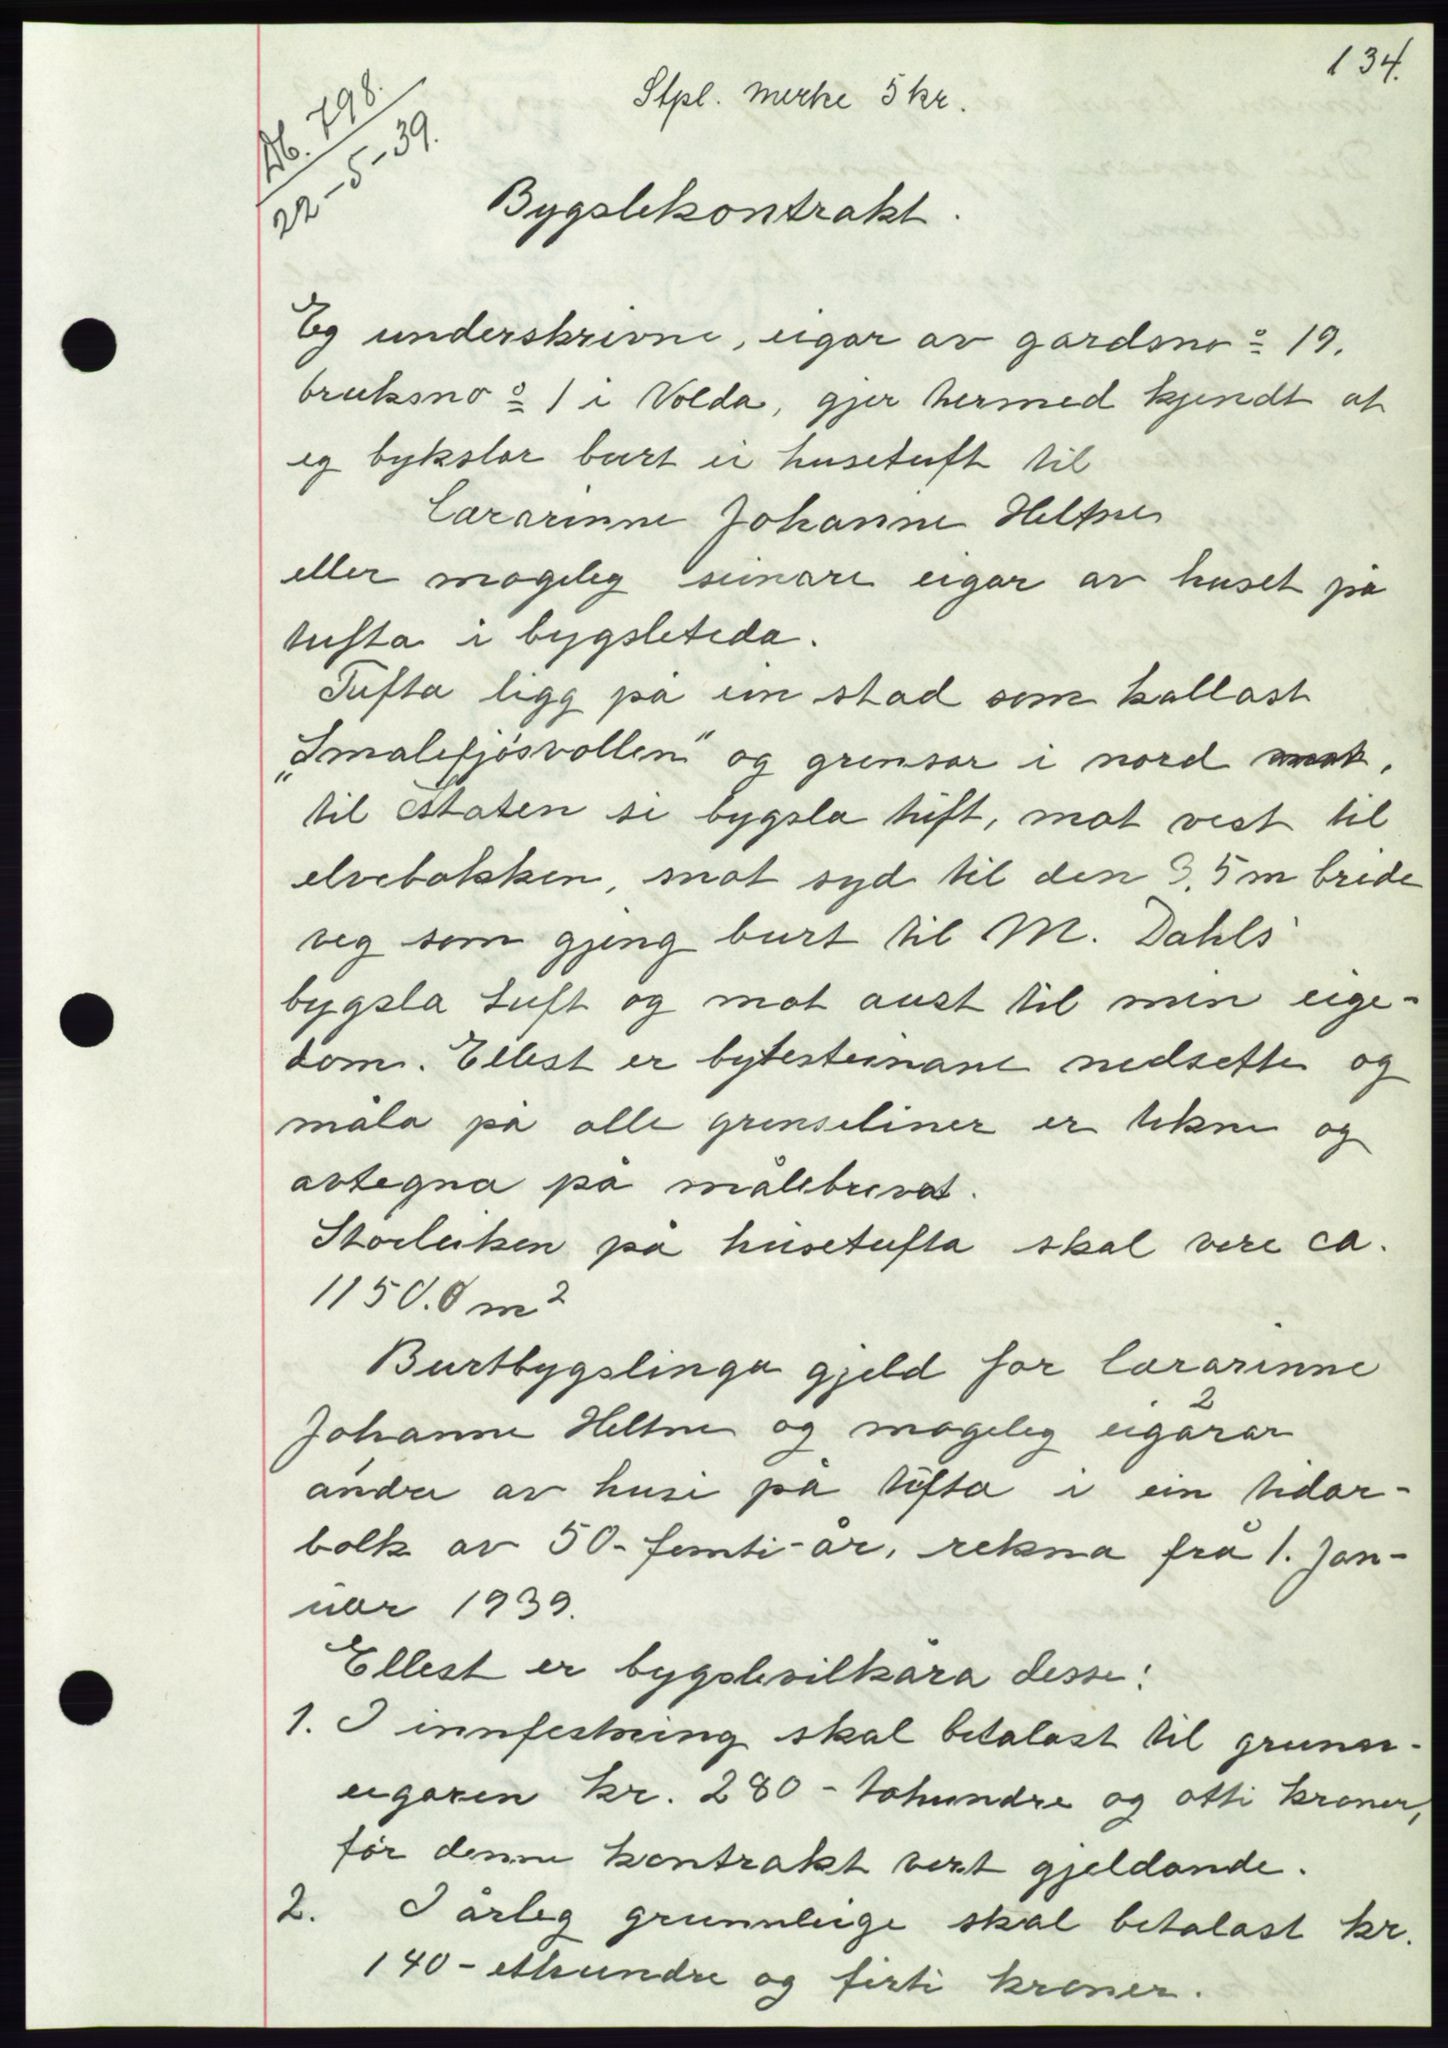 134.
Stpl. merke 5 kr.
Db. 798.
22-5-39.
Bygslekontrakt.
Eg underskrivne, eigar av gardsno º 19.
bruksno º 1 i Volda, gjer hermed kjendt at
eg bykslar burt ei husetuft til
Lærarinne Johanne Heltne
eller mogeleg seinare eigar av huset på
tufta i bygsletida.
Tufta ligg på ein stad som kallast
„Smalefjøsvollen" og grensar i nord mot,
til Staten si bygsla tuft, mot vest til
elvebakken, mot syd til den 3,5 m breide
veg som gjeng burt til M. Dahls
bygsla tuft og mot aust til min eige-
dom. Ellest er bytesteinane nedsette og
måla på alle grenseliner er tekne og
avtegna på målebrevet.
Storleiken på husetufta skal vere ca.
1150.0 m²
Burtbygslinga gjeld for lærarinne
Johanne Heltne og mogeleg eigarar 2
andre av huse på tufta i ein tidar-
bolk av 50 - femti - år, rekna frå 1. Jan-
uar 1939.
Ellest er bygslevilkåra desse:
1. I innfestning skal betalast til grunn-
eigaren kr. 280 - tohundre og otti kroner,
før denne kontrakt vert gjeldande.
2. I årleg grunnleige skal betalast kr.
140 - etthundre og firti kroner.